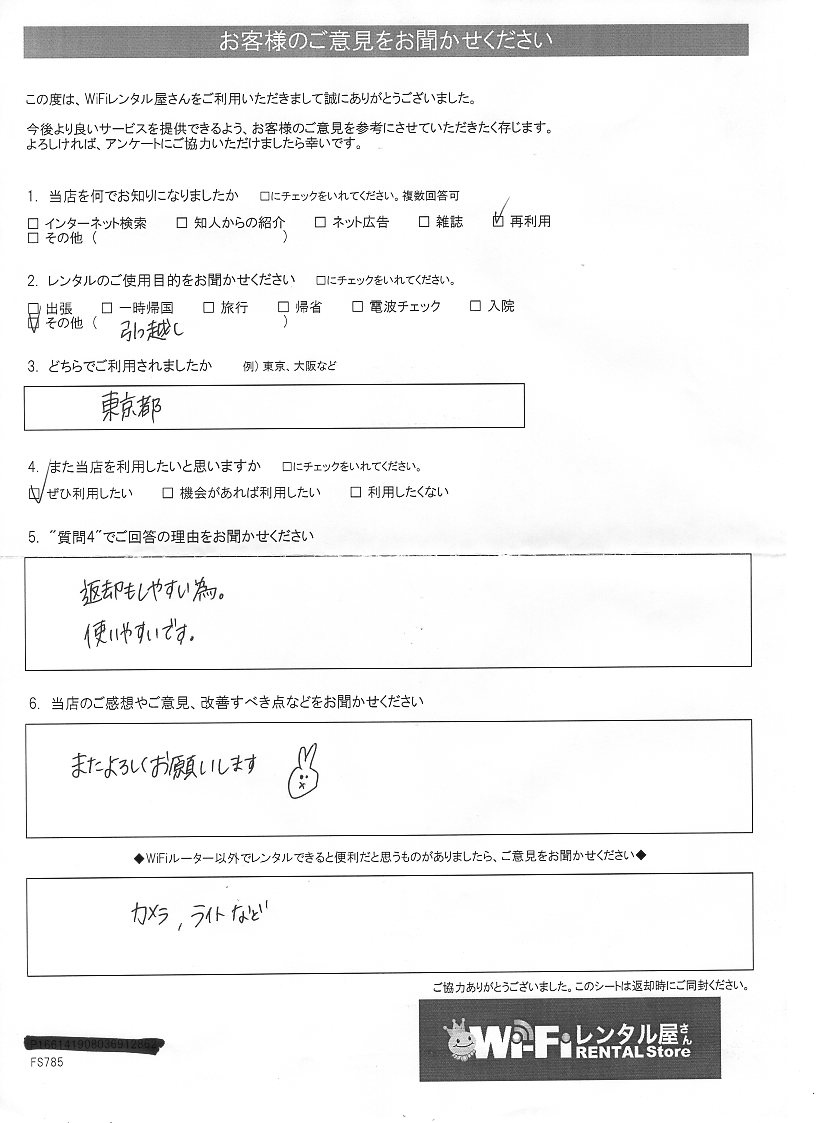 お客様のご意見をお聞かせください
この度は、WiFiレンタル屋さんをご利用いただきまして誠にありがとうございました。
今後より良いサービスを提供できるよう、お客様のご意見を参考にさせていただきたく存じます。
よろしければ、アンケートにご協力いただけましたら幸いです。
1. 当店を何でお知りになりましたか □にチェックをいれてください。複数回答可
□ インターネット検索 □ 知人からの紹介 □ ネット広告 □ 雑誌 ☑ 再利用
□ その他 ( )
2. レンタルのご使用目的をお聞かせください □にチェックをいれてください。
□ 出張 □ 一時帰国 □ 旅行 □ 帰省 □ 電波チェック □ 入院
☑ その他 ( 引っ越し )
3. どちらでご利用されましたか 例) 東京、大阪など
東京都
4. また当店を利用したいと思いますか □にチェックをいれてください。
☑ ぜひ利用したい □ 機会があれば利用したい □ 利用したくない
5. "質問4"でご回答の理由をお聞かせください
返却もしやすい為。
使いやすいです。
6. 当店のご感想やご意見、改善すべき点などをお聞かせください
またよろしくお願いします
◆WiFiルーター以外でレンタルできると便利だと思うものがありましたら、ご意見をお聞かせください◆
カメラ, ライトなど
ご協力ありがとうございました。このシートは返却時にご同封ください。
Wi-Fiレンタル屋さん
RENTAL Store
FS785